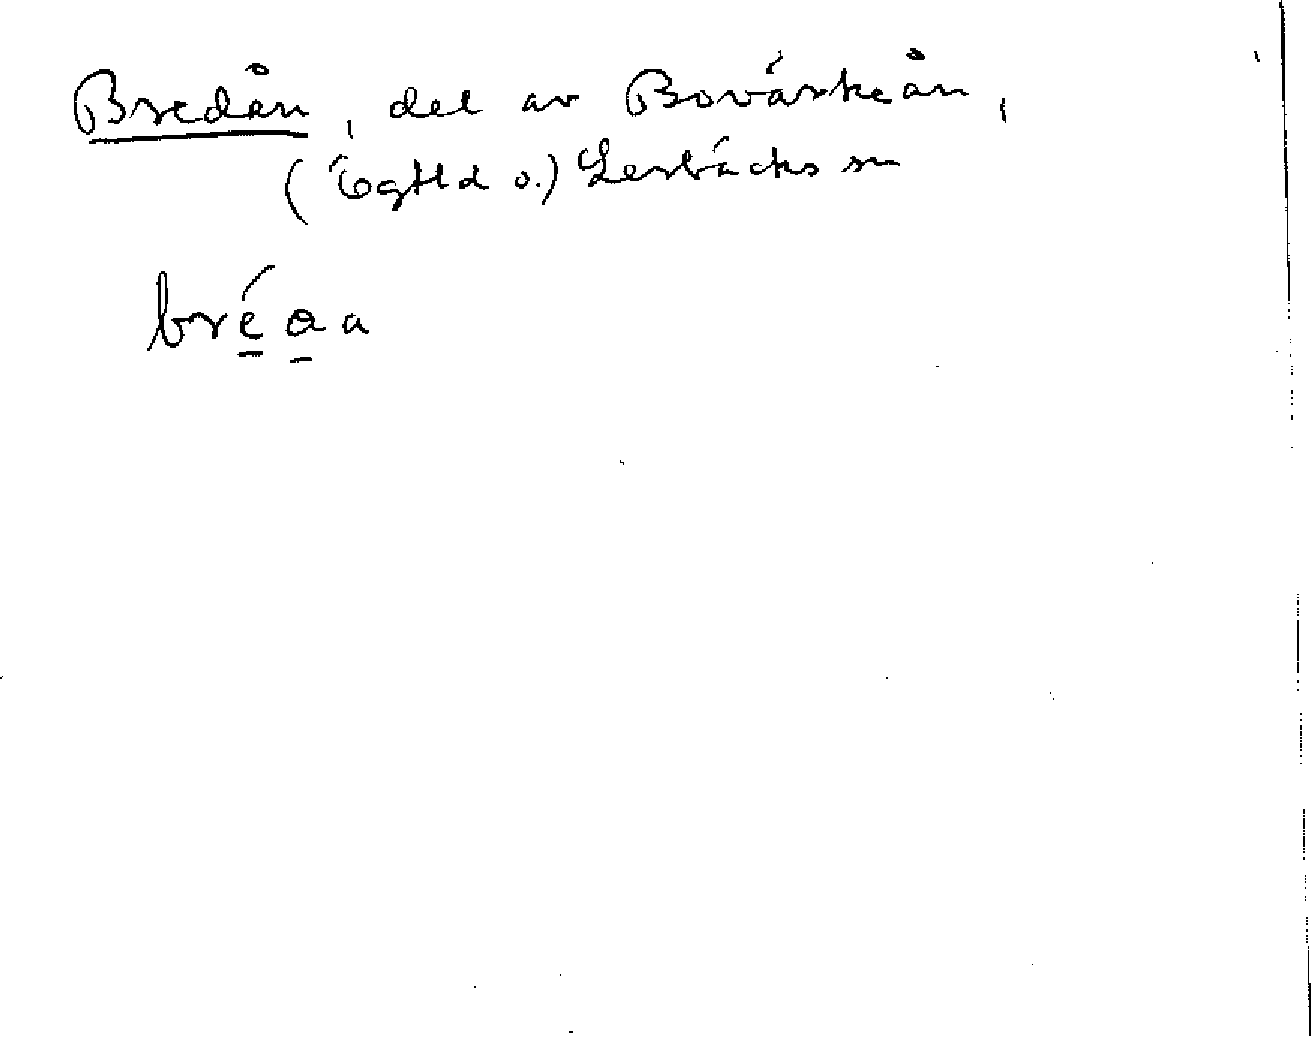 Bredån, del av Bovärkeån,
(Ögtld o.) Lerbäcks sn
bré̱ a̱ a